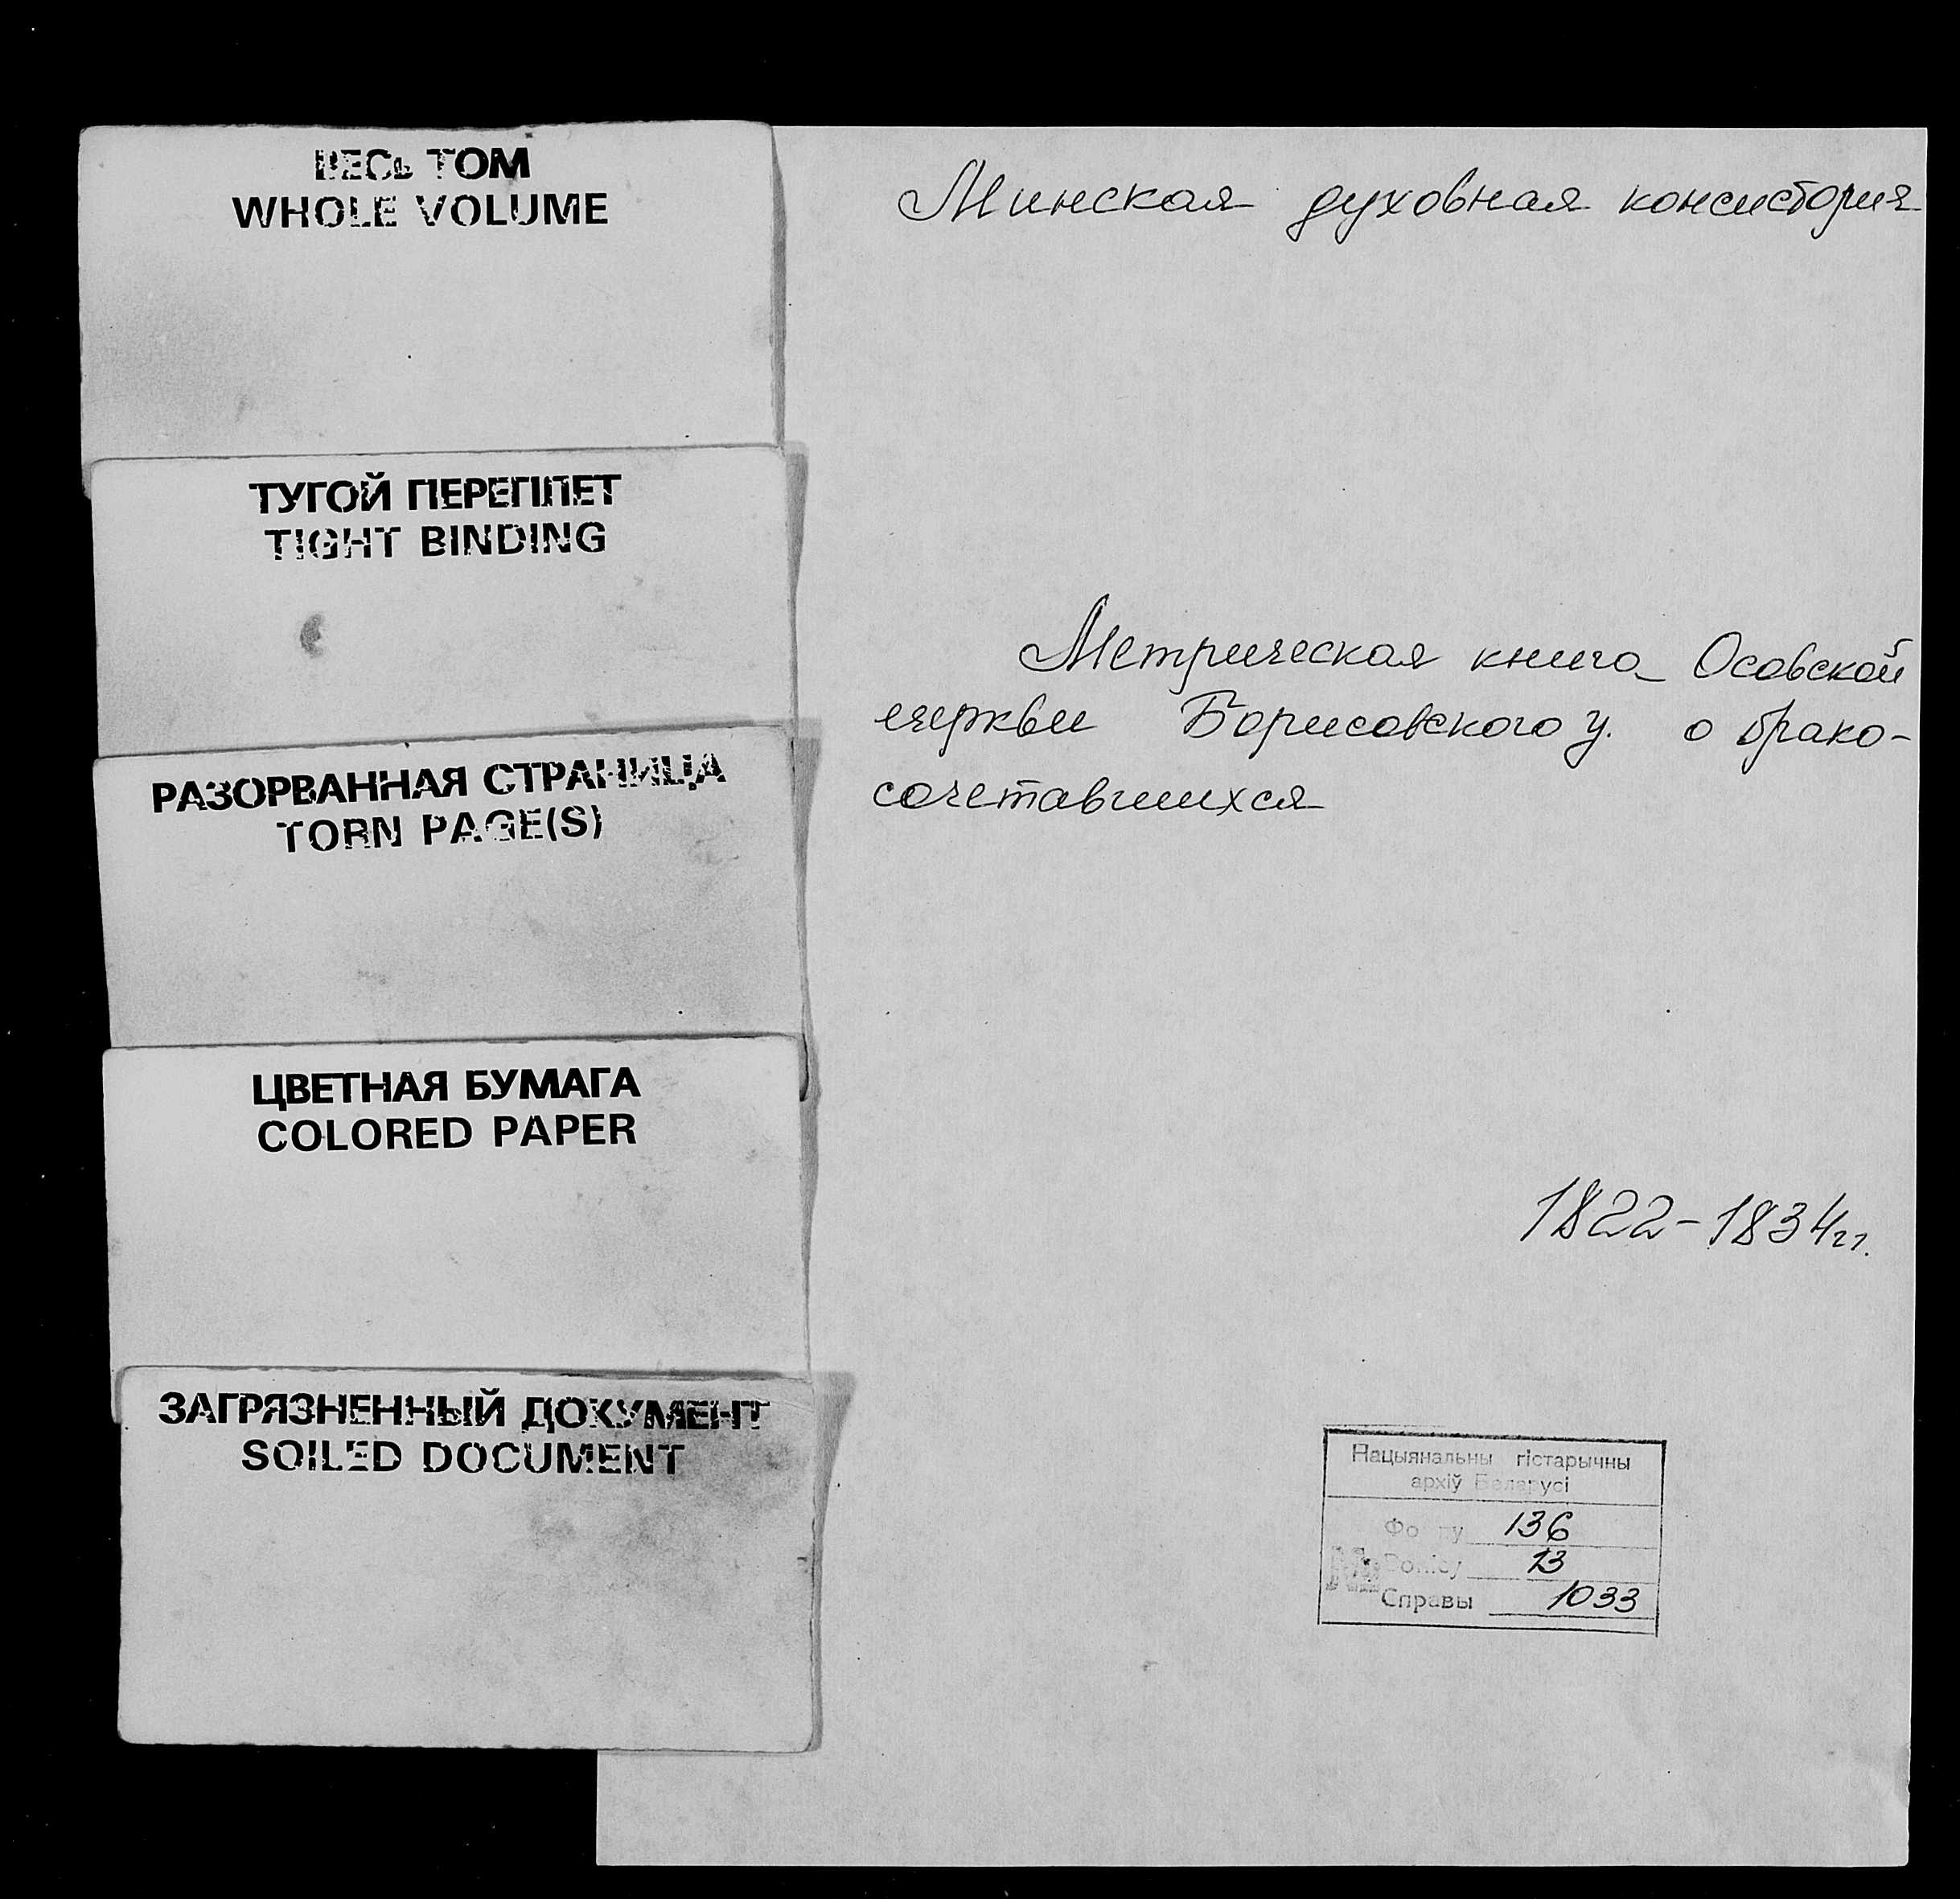 ВЕСЬ ТОМ
WHOLE VOLUME
ТУГОЙ ПЕРЕПЛЕТ
TIGHT BINDING
РАЗОРВАННАЯ СТРАНИЦА
TORN PAGE(S)
ЦВЕТНАЯ БУМАГА
COLORED PAPER
ЗАГРЯЗНЕННЫЙ ДОКУМЕНТ
SOILED DOCUMENT
Минская духовная консистория
Метрическая книга Осовской
церкви Борисовского у. о брако-
сочетавшихся
1822-1834 гг.
Нацыянальны гістарычны
архіў Беларусі
Фонду 136
Вопісу 13
Справы 1033